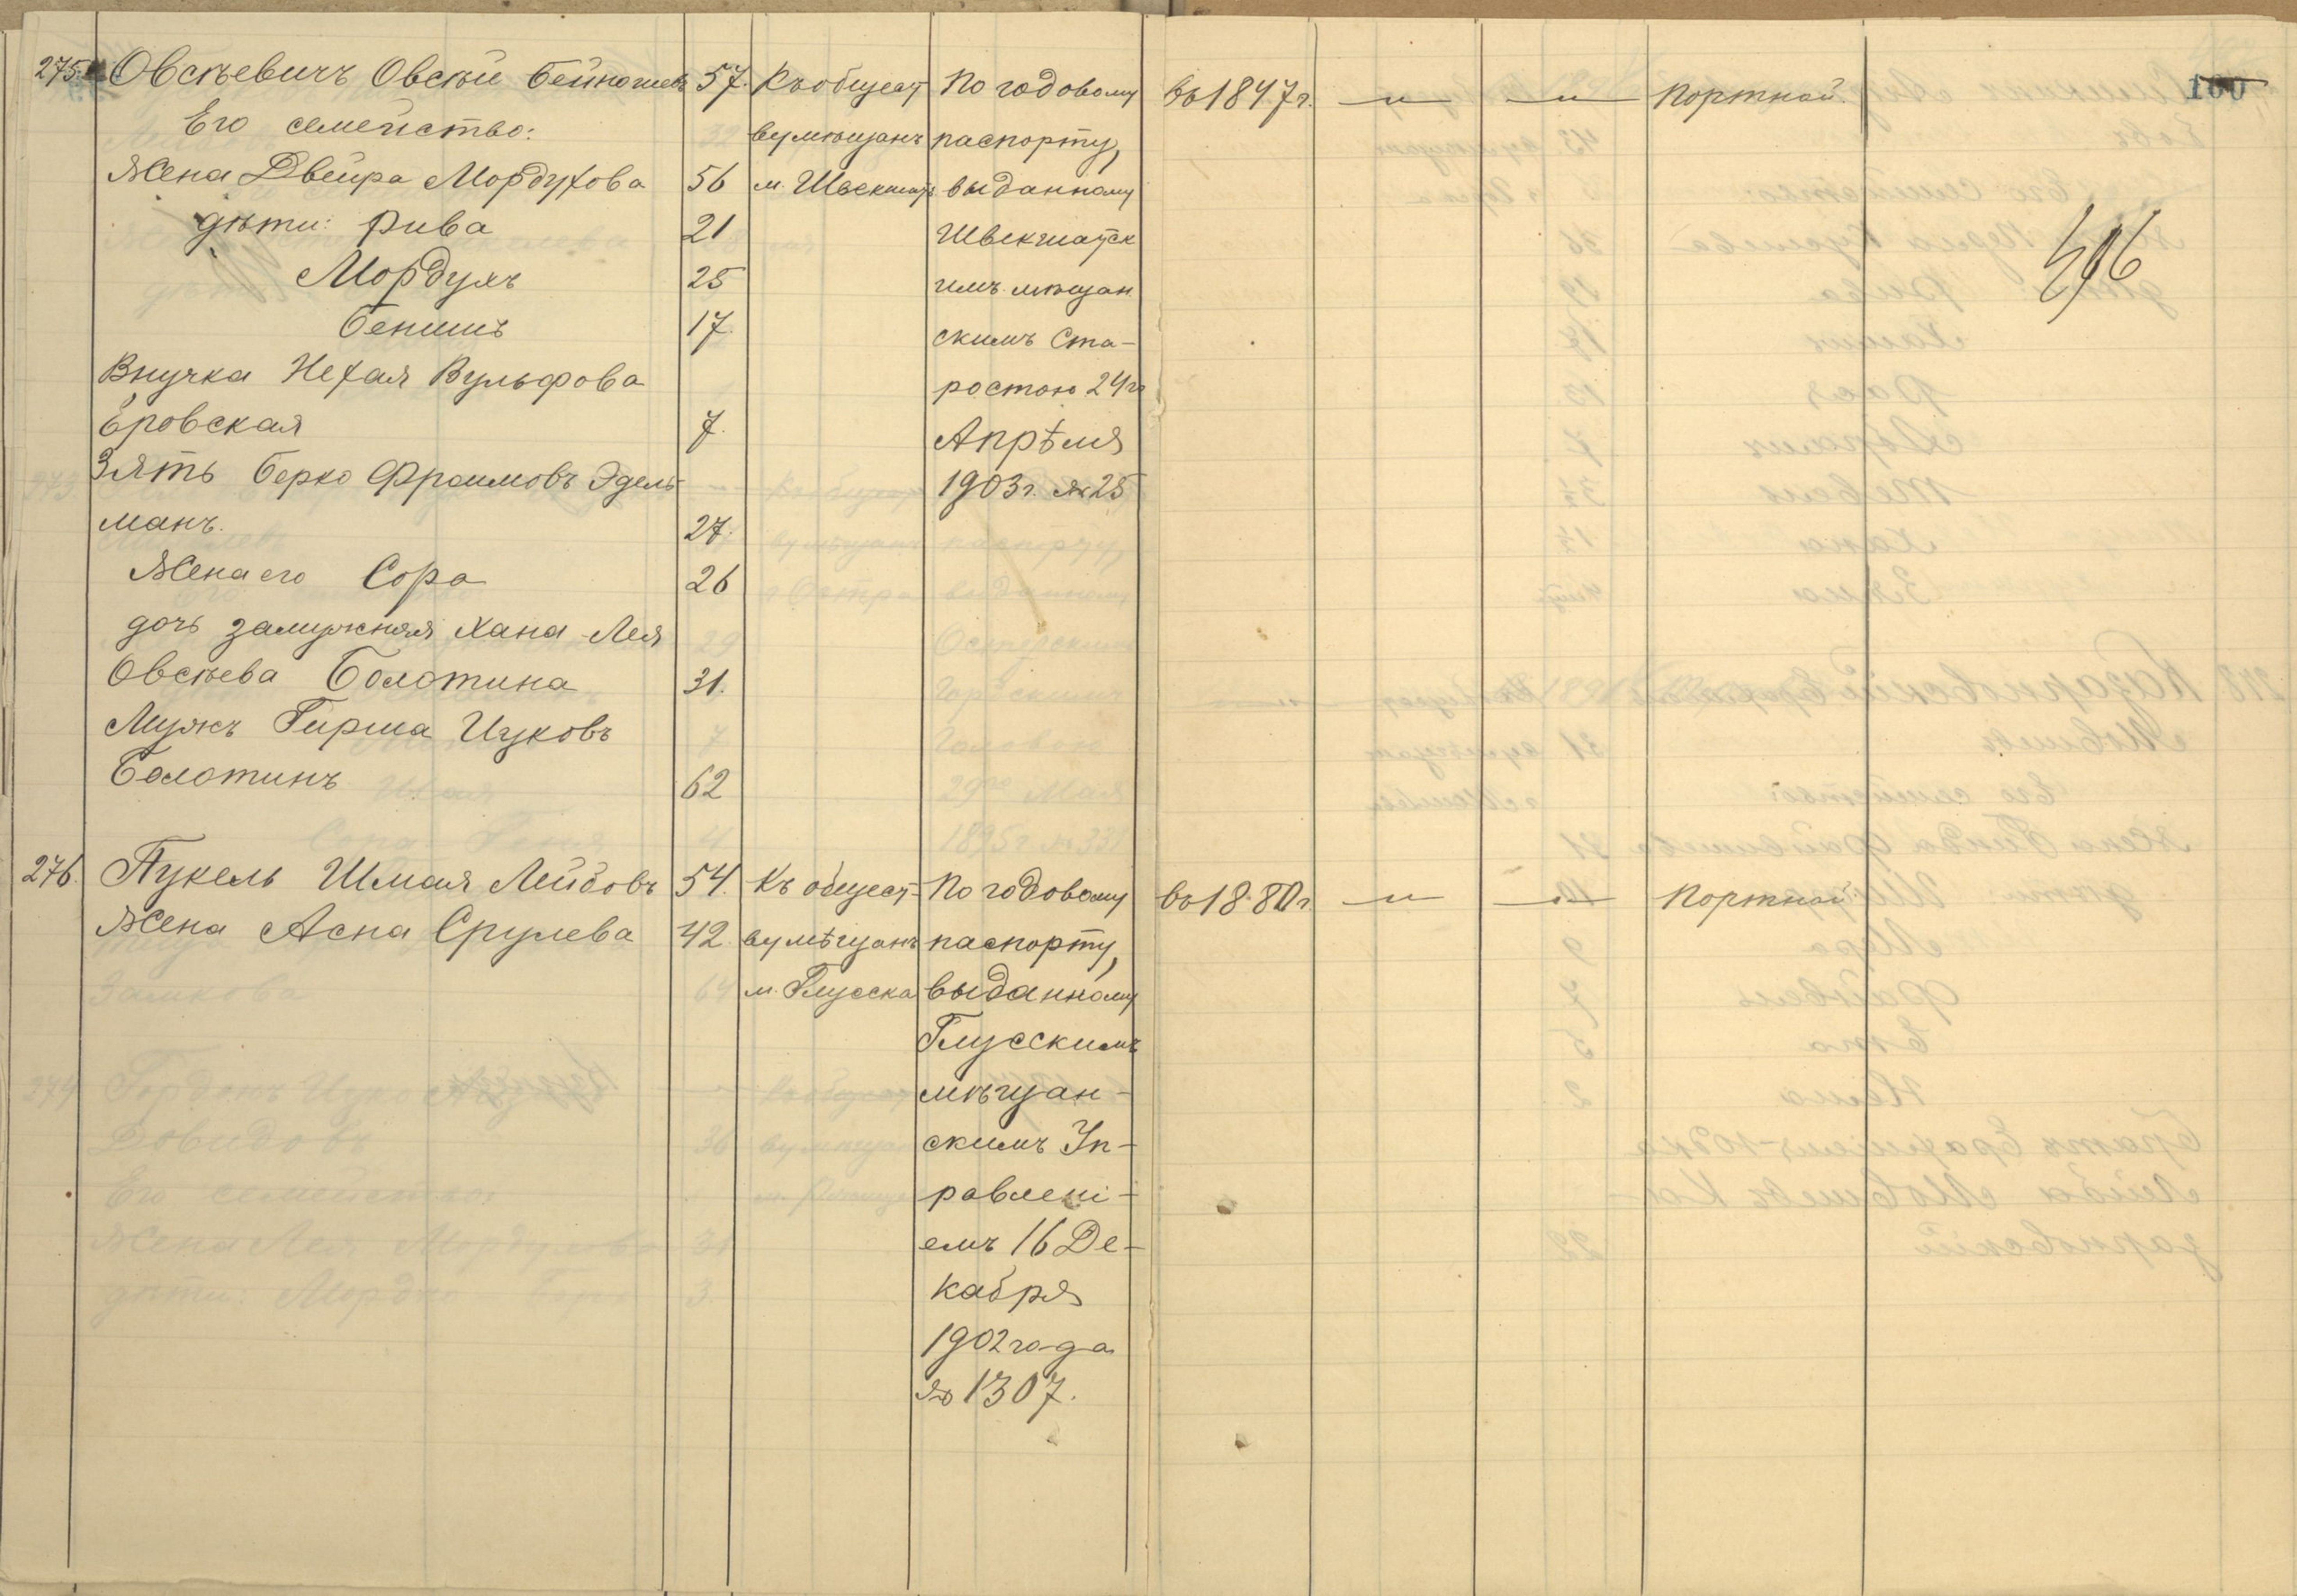 275. Овсѣевичъ Овсѣй Бейношевъ 57. Къ общест По годовому въ 1847 г. — " — — " — Портной. 100
Его семейство: ву мѣщанъ паспорту,
Жена Двейра Мордухова 56 м. Швекшнъ выданному
дѣти: Рива 21 Швекшатск 496
Мордухъ 25 имъ мѣщан
Бенишъ 17. скимъ Ста-
Внучка Нехая Вульфова ростою 24го
Еровская 7. Апрѣля
Зять Берко Фроимовъ Эдель- 1903 г. № 25
манъ. 27.
Жена его Сора 26
дочь замужняя Хана-Лея
Овсѣева Болотина 31.
Мужъ Гирша Ицковъ
Болотинъ 62
276. Пукель Шмая Лейбовъ 54. Къ общест- По годовому въ 1880 г. — " — — " — Портной
Жена Асна Срулева 42. ву мѣщанъ паспорту,
м. Глусска выданному
Глусскимъ
мѣщан-
скимъ Уп-
равлені-
емъ 16 Де-
кабря
1902 года
№ 1307.